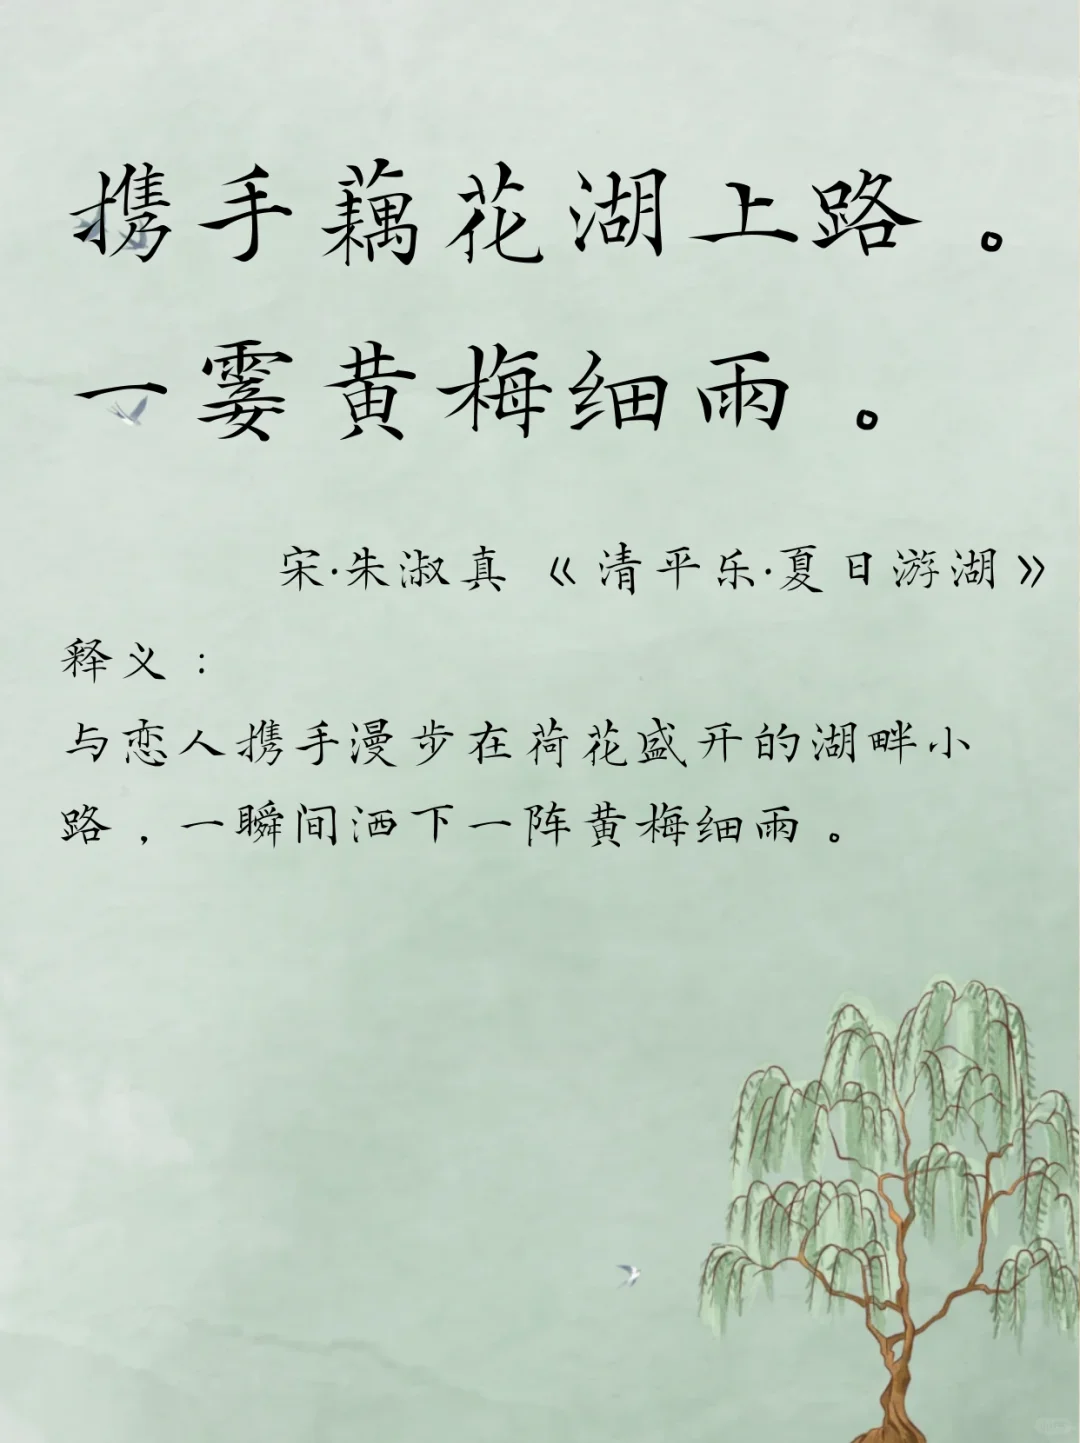 携手藕花湖上路。
一霎黄梅细雨。
宋·朱淑真《清平乐·夏日游湖》
释义：
与恋人携手漫步在荷花盛开的湖畔小
路，一瞬间洒下一阵黄梅细雨。